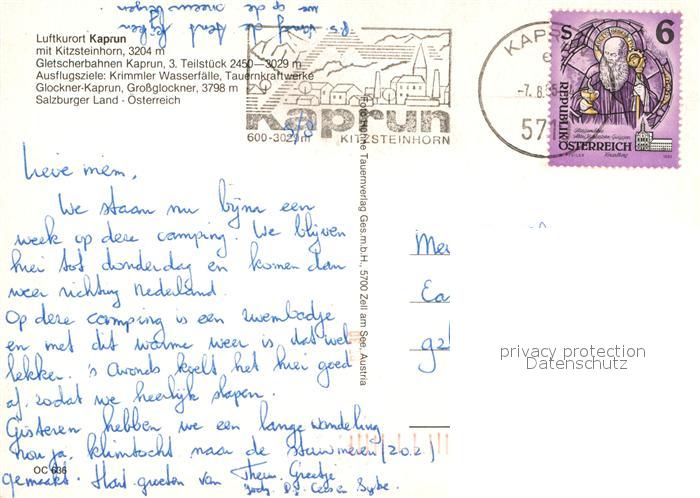 p.s. vanaf de kant kijken
we op de
Luftkurort Kaprun
mit Kitzsteinhorn, 3204 m
Gletscherbahnen Kaprun, 3. Teilstück 2450—3029 m
Ausflugsziele: Krimmler Wasserfälle, Tauernkraftwerke
Glockner-Kaprun, Großglockner, 3798 m
Salzburger Land · Österreich
Kaprun
600-3029m KITZSTEINHORN
KAPR
-7. 8. 95
571
S 6
REPUBLIK
ÖSTERREICH
Tauernverlag Ges.m.b.H., 5700 Zell am See, Austria
Lieve mem,
We staan nu bijna een
week op deze camping. We blijven
hier tot donderdag en komen dan
weer richting Nederland.
Op deze camping is een zwembadje
en met dit warme weer is dat wel
lekker. 's Avonds koelt het hier goed
af, zodat we heerlijk slapen.
Gisteren hebben we een lange wandeling
nou ja, klimtocht naar de stuwmeren (2021)
gemaakt. Hart. groeten van Theun, Greetje
Cees en Sybe.
Me
Ea
privacy protection
Datenschutz
OC 636